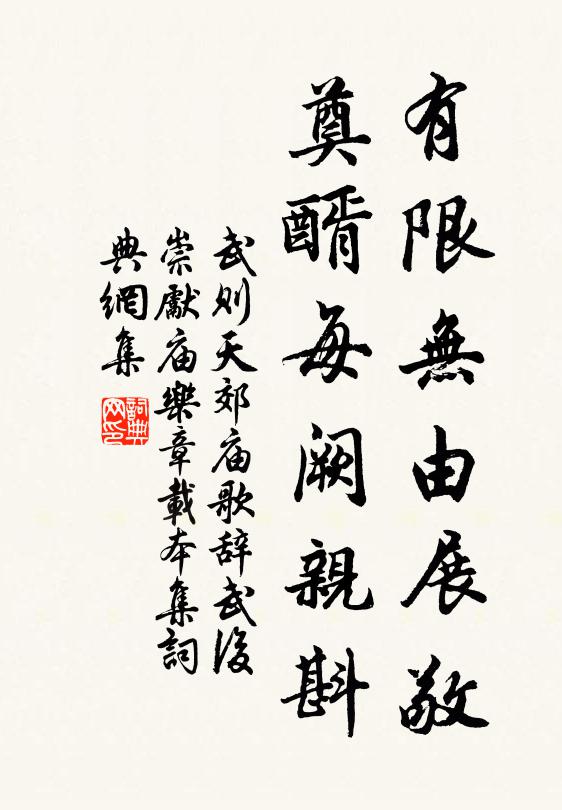 有限無由展敬
奠醑每闕親斟
武則天郊庙歌辞武後
崇獻庙樂章載本集詞
典網集
詞典网印